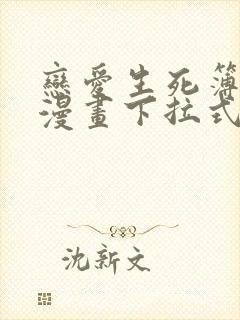 戀愛生死簿
漫畫下拉式
沈新文